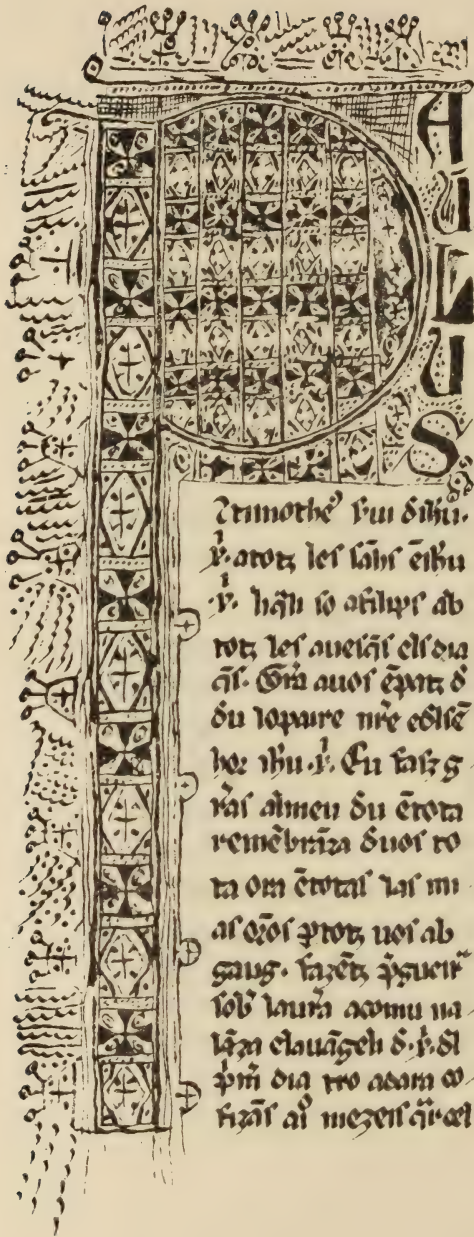 PAULUS
⁊timothe᾽ s᾽ui d᾽ihu.
x̄. atotz les sāhs ēihu
.x̄. liq̄li so afilips ab
totz les auesq̄s els dia
q̄s. Gr̄a auos ēpatz d᾽
d᾽u lopaire nr̄e edlsē
hor ihu .x̄. Eu fasz g
r̄as almeu d᾽u ētota
remēbrāza d᾽uos to
ta ora ētotas las mi
as orōs p̄totz uos ab
gaug. fazētz p̄guer
sob᾽ laur̄a acomu na
lāza elauāgeli d᾽.x̄.dl
p̄m dia tro adara co
fizās aq̄ mezeis q̄r cel